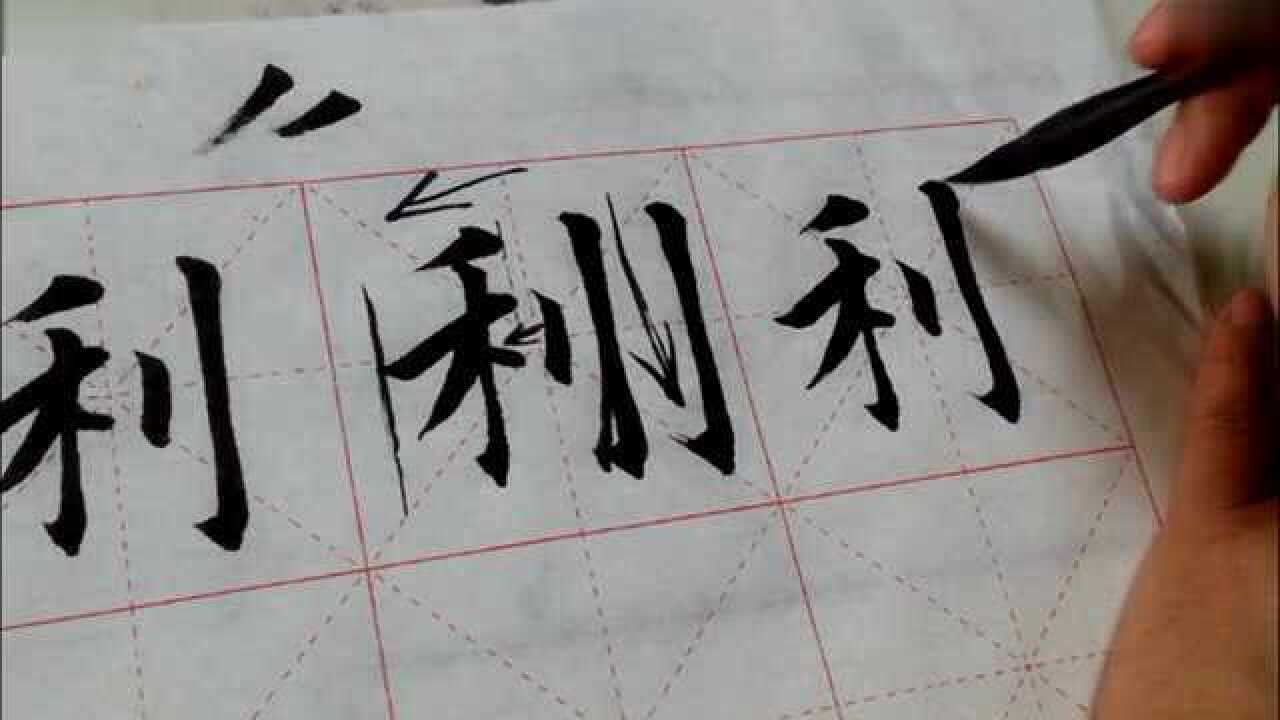 利 利 利